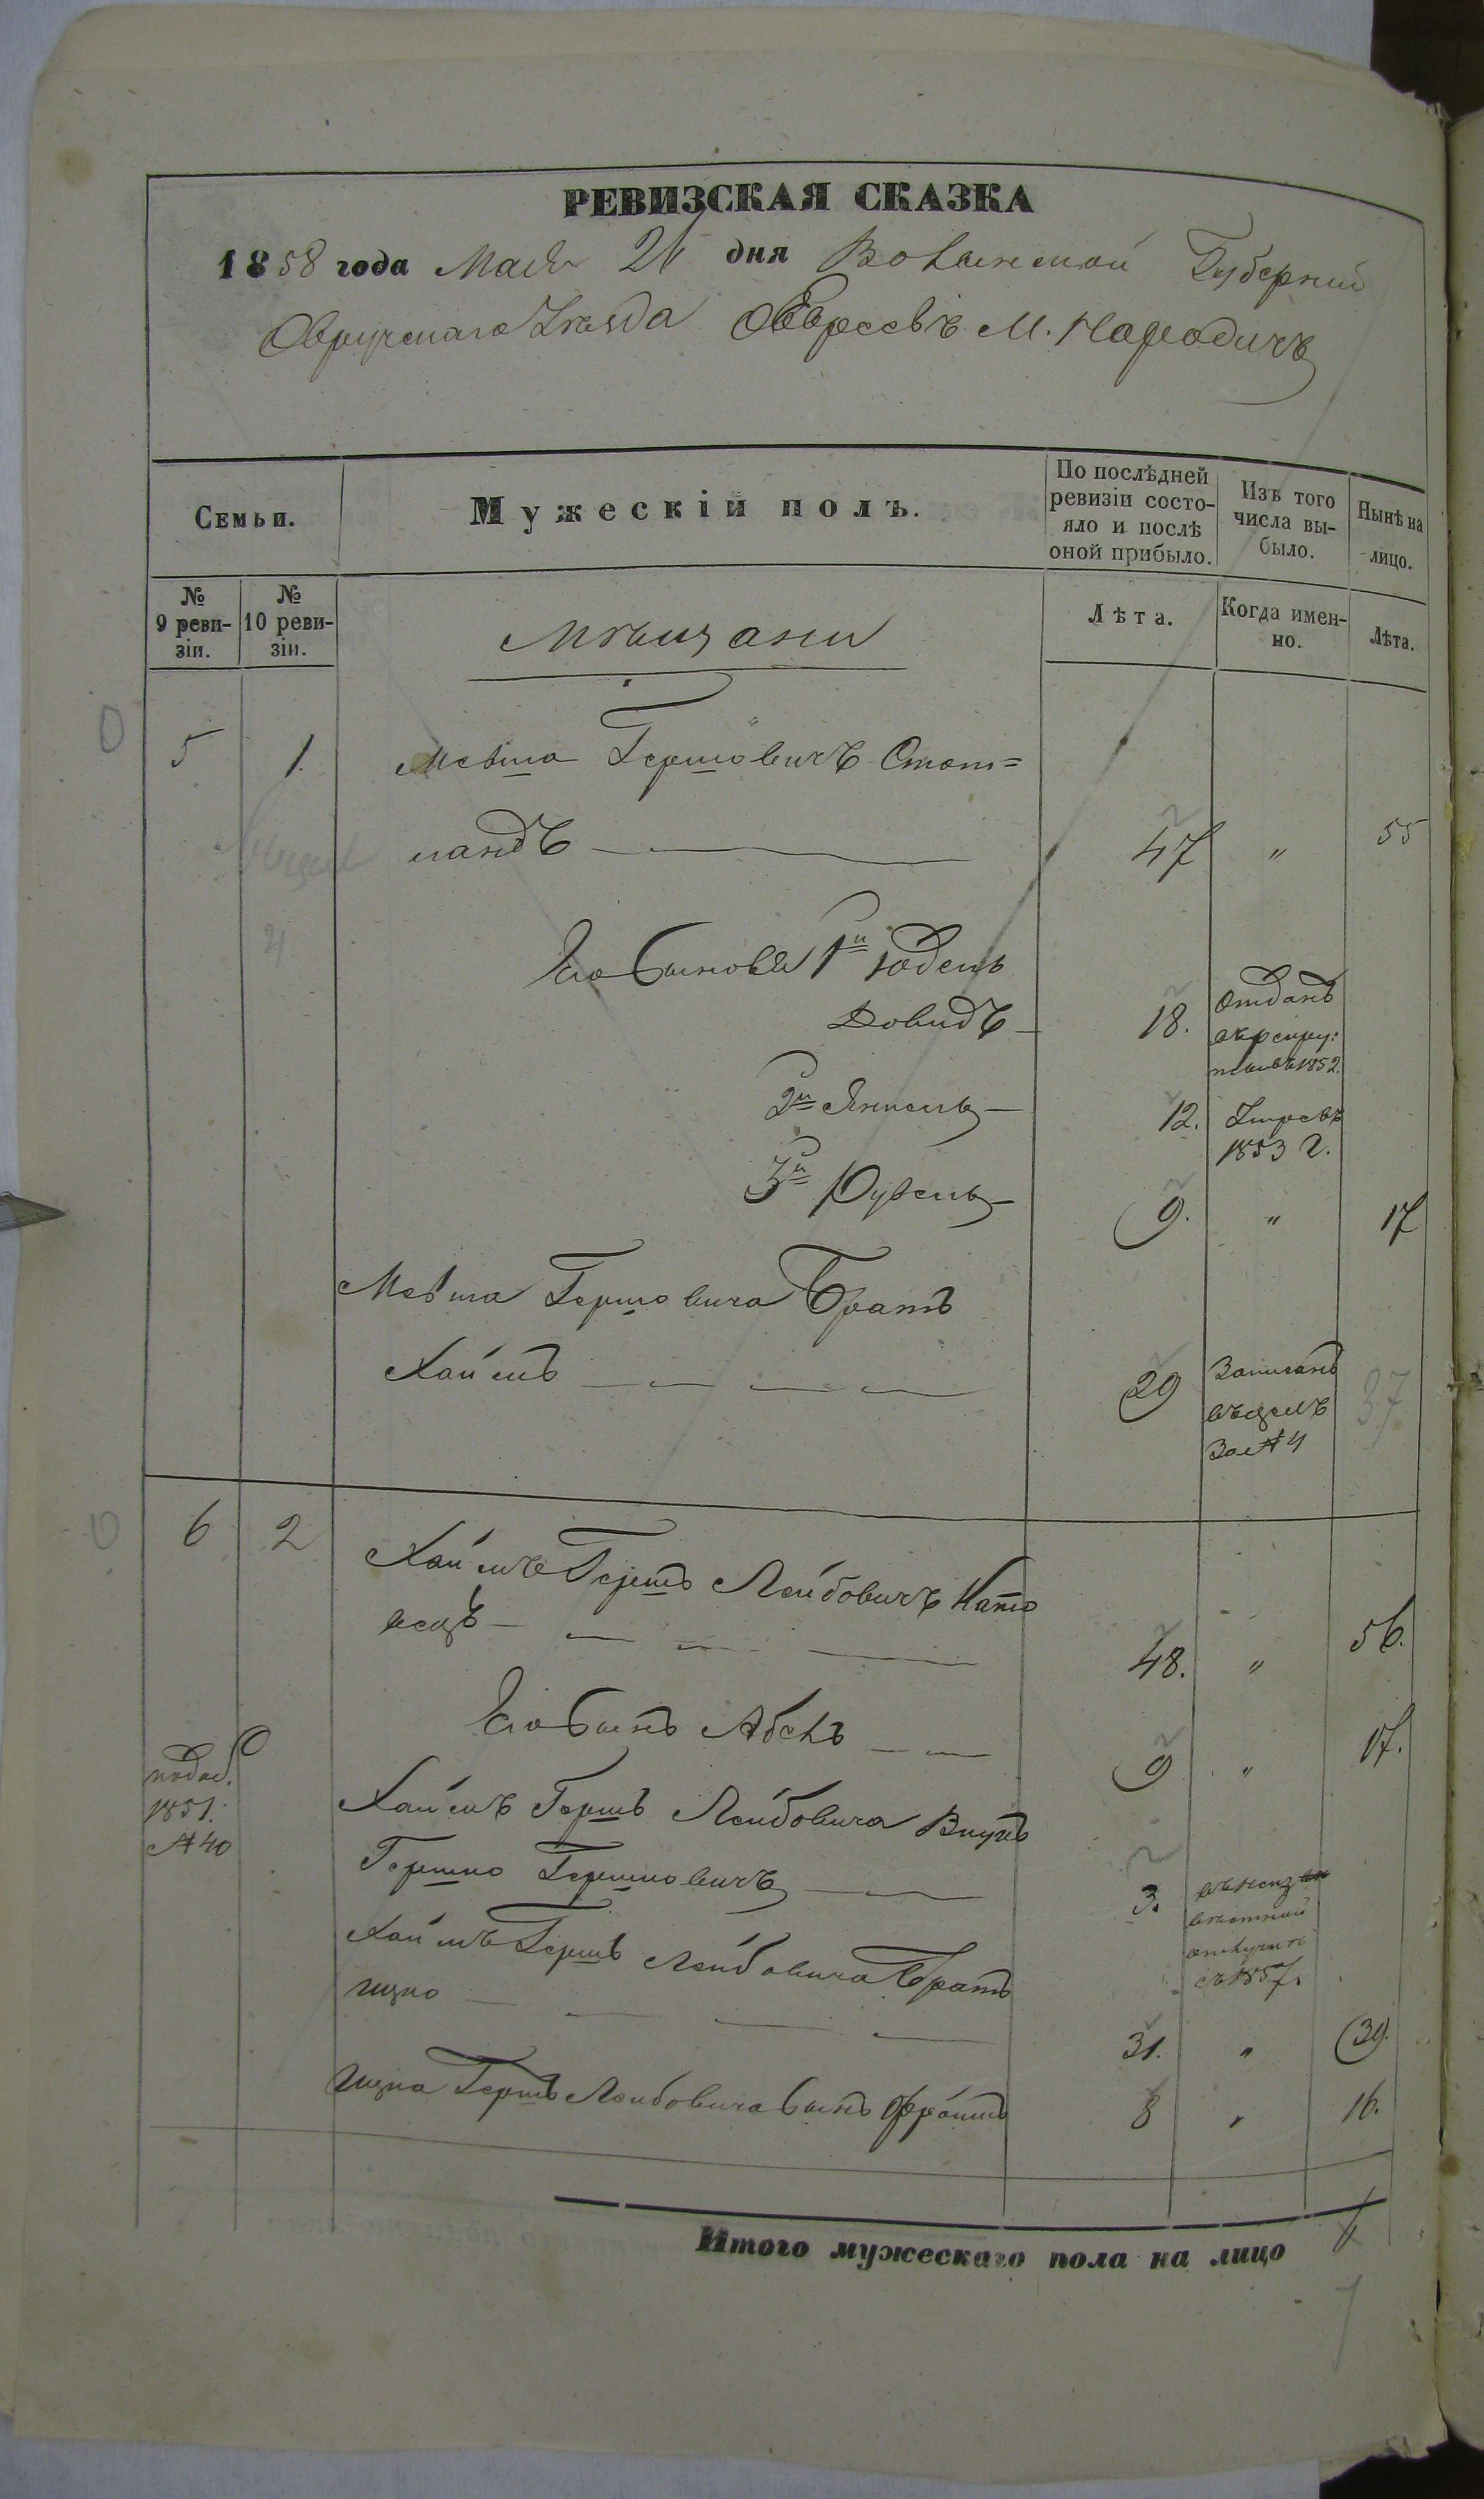 РЕВИЗСКАЯ СКАЗКА
1858 года Мая 26 дня Волынской Губерніи
Овручскаго Уезда Евреевъ М. Народичъ
Семьи.
Мужескій полъ.
По послѣдней ревизіи состо-
яло и послѣ
оной прибыло.
Изъ того
числа вы-
было.
Нынѣ на
лицо.
№
9 реви-
зіи.
№
10 реви-
зіи.
Мѣщани
Лѣта.
Когда имен-
но.
Лѣта.
5 1. Мовша Гершовичъ Стот=
ландъ 47 " 55
4
Его Сыновья 1й Юдель
Довидъ 18. Отданъ
въ рекру:
ты въ 1852.
2й Янкель 12. Умре въ
1853 г.
3й Рувель 9. " 17
Мовша Гершовича Братъ
Хаимъ 29 Записанъ
За № 4 37
6 2 Хаимъ Гершъ Лейбовичъ
48. " 56.
Его Сынъ Абелъ 9 " 17.
1851.
№ 40
Хаимъ Гершъ Лейбовича Внукъ
Гершко Гершковичъ 3.
отлучкѣ
съ 1857.
Хаимъ Гершъ Лейбовича Братъ
Ицко 31. " 39.
Ицка Гершъ Лейбовича Сынъ Фроимъ 8 " 16.
Итого мужескаго пола на лицо
7